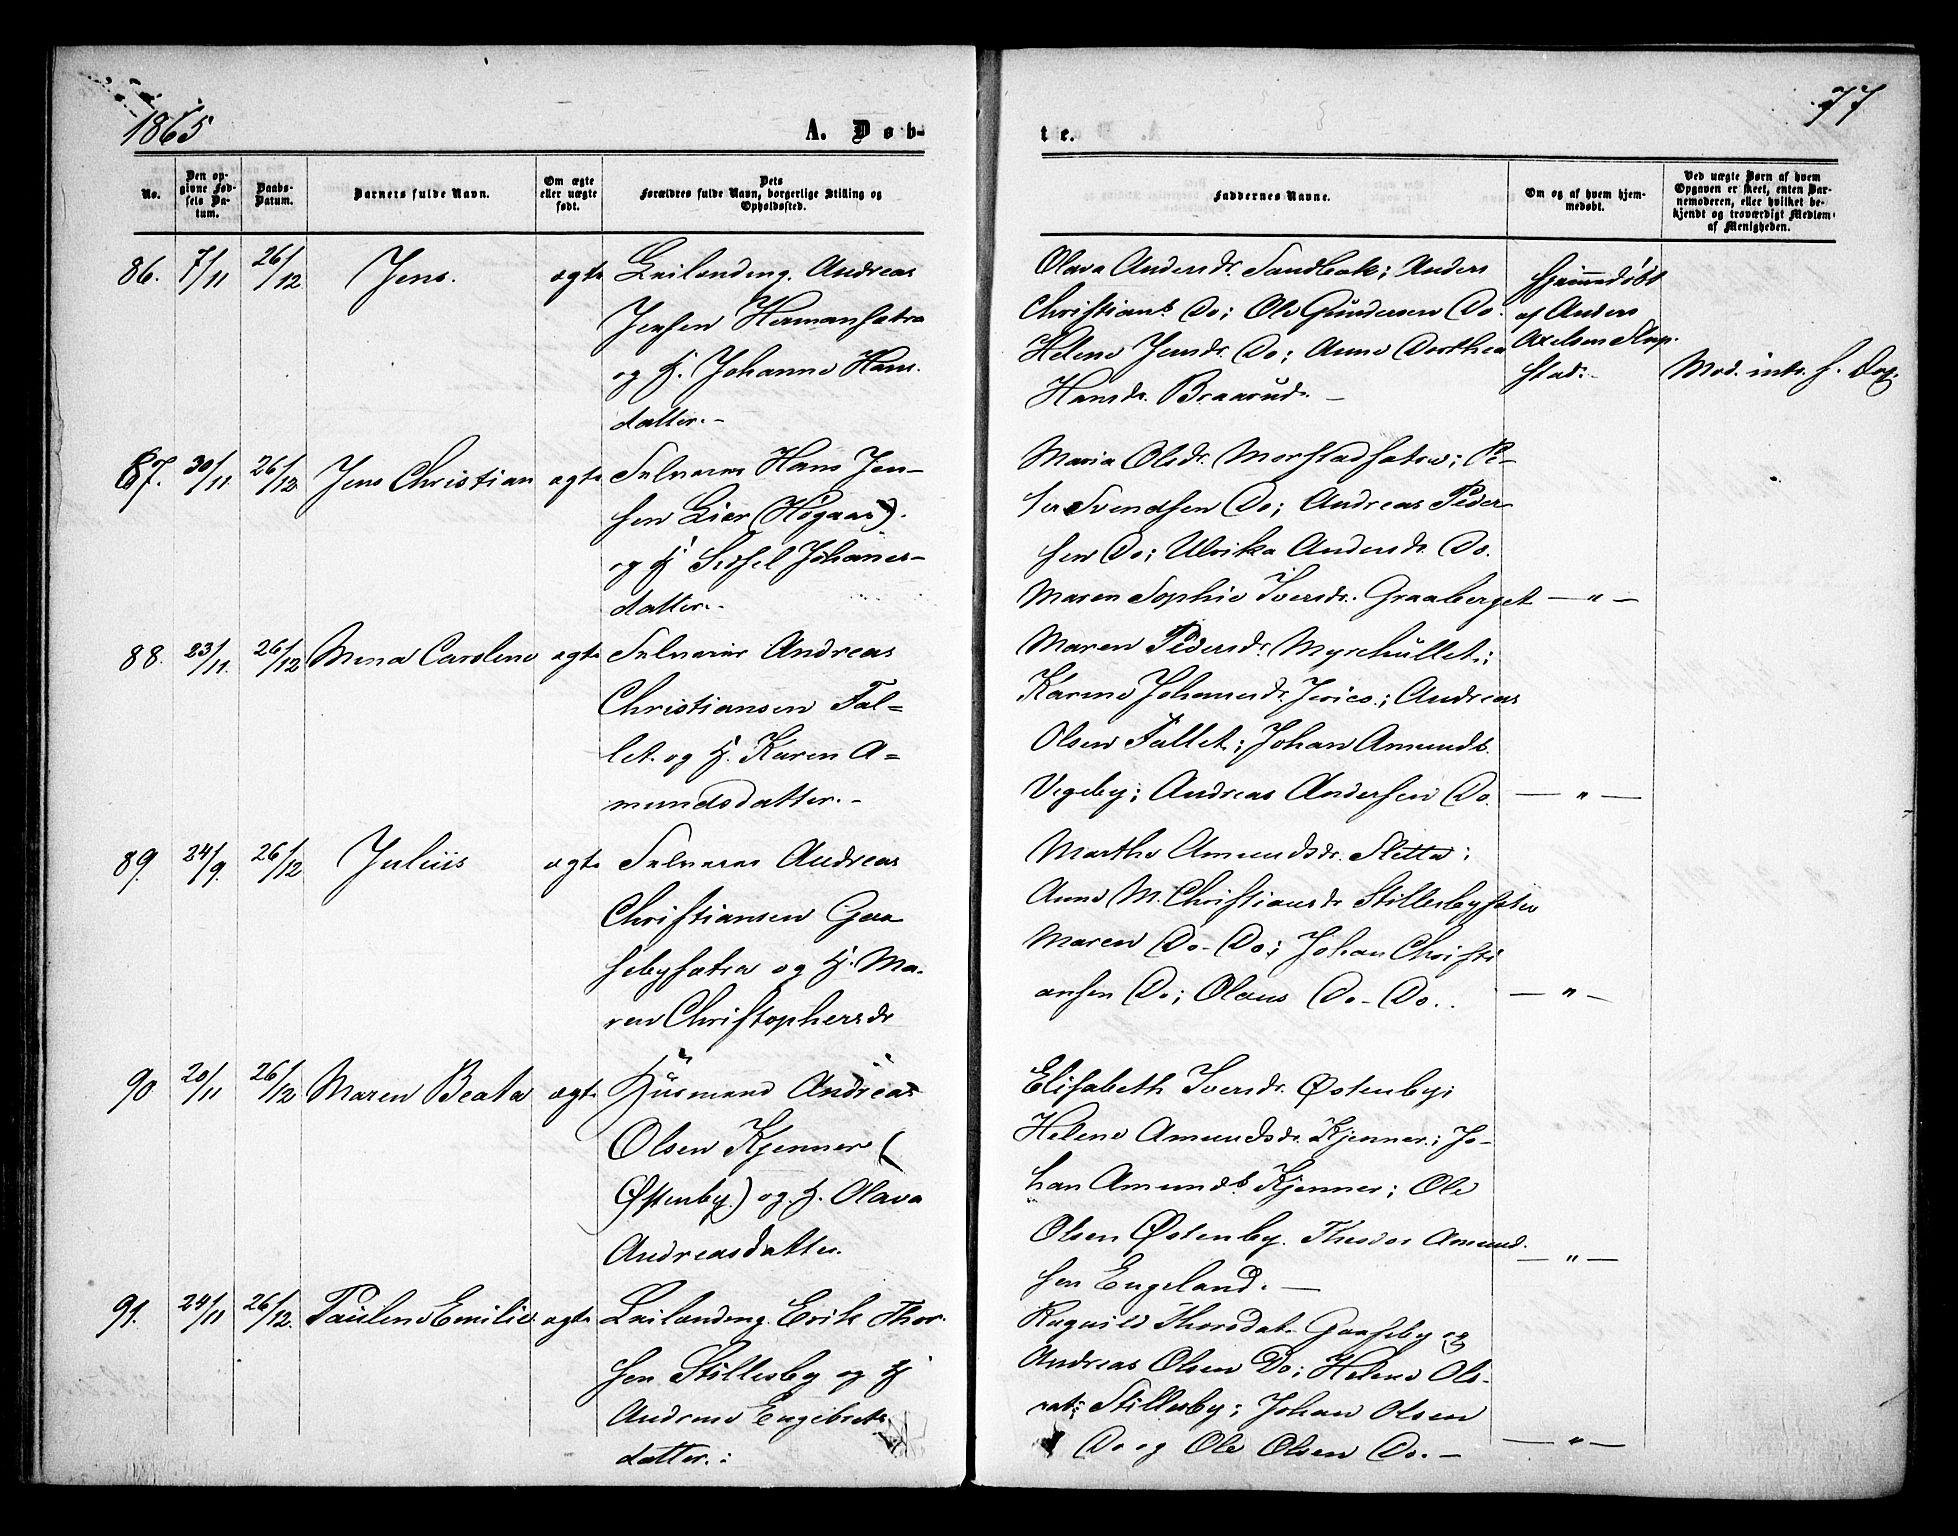 1865
A. Døb-
te.
77
No.
Den op-
givne Fød-
sels Da-
tum.
Daabs-
Datum.
Barnets fulde Navn.
Om ægte
eller uægte
født.
Dets
Forældres fulde Navn, borgerlige Stilling og
Opholdssted.
Faddernes Navne.
Om og af hvem hjem-
medøbt.
Ved uægte Børn af hvem
Opgaven er skeet, enten Bar-
nemoderen, eller hvilket be-
kjendt og troværdigt Medlem
af Menigheden.
86. 7/11 26/12 Jens. ægte Leilænding Andreas
Jensen Hermansætra
og H. Johanne Hans-
datter.-
Olava Andersdr. Sandbak; Anders
Christians. Do; Ole Gundersen Do.
Helene Jensdr. Do; Anne Dorthea
Hansdr. Braarud. -
Hjemmedøbt
af Anders
Axelsen Slup-
stad.
Mod. intr. s. Dag.
87. 30/11 26/12 Jens Christian ægte Selveier Hans Jen-
sen Lier (Høgaas).
og H. Sidsel Johanes-
datter.-
Maria Olsdr. Morstadsætra; Pe-
ter Svendsen Do; Andreas Peder-
sen Do; Ulrika Andersdr. Do.
Maren Sophie Iversdr. Graaberget — " —
88. 23/11. 26/12 Mina Caroline ægte Selveier Andreas
Christiansen Fal-
let og H. Karen A-
mundsdatter.-
Maren Pedersdr. Myrehullet;
Karine Johannesdr. Jerico; Andreas
Olsen Fallet; Johan Amunds.
Vegeby; Andreas Andersen Do. — " —
89. 24/9. 26/12 Julius ægte Selveier Andreas
Christiansen Gaa
sebysætra og H. Ma-
ren Christophersdr
Marthe Amundsdr. Sletta;
Anne M. Christiansdr Stillesbysætr
Maren Do-Do; Johan Christi
ansen Do; Olaus Do-Do. — " —
90 20/11 26/12 Maren Beata ægte Husmand Andreas
Olsen Kjenner (
Østenby) og H. Olava
Andreasdatter.
Elisabeth Iversdr. Østenby;
Helene Amundsdr. Kjenner; Jo-
han Amunds. Kjenner; Ole
Olsen Østenby. Theodor Amund-
sen Engeland. — — " —
91. 24/11 26/12. Pauline Emilie ægte Leilænding Erik Thor-
sen Stillesby og H
Andrine Engebrets
datter.:
Ragnild Thorsdat. Gaaseby og
Andreas Olsen Do; Helene Ols-
dat; Stillesby; Johan Olsen
Do og Ole Olsen Do. — — " —